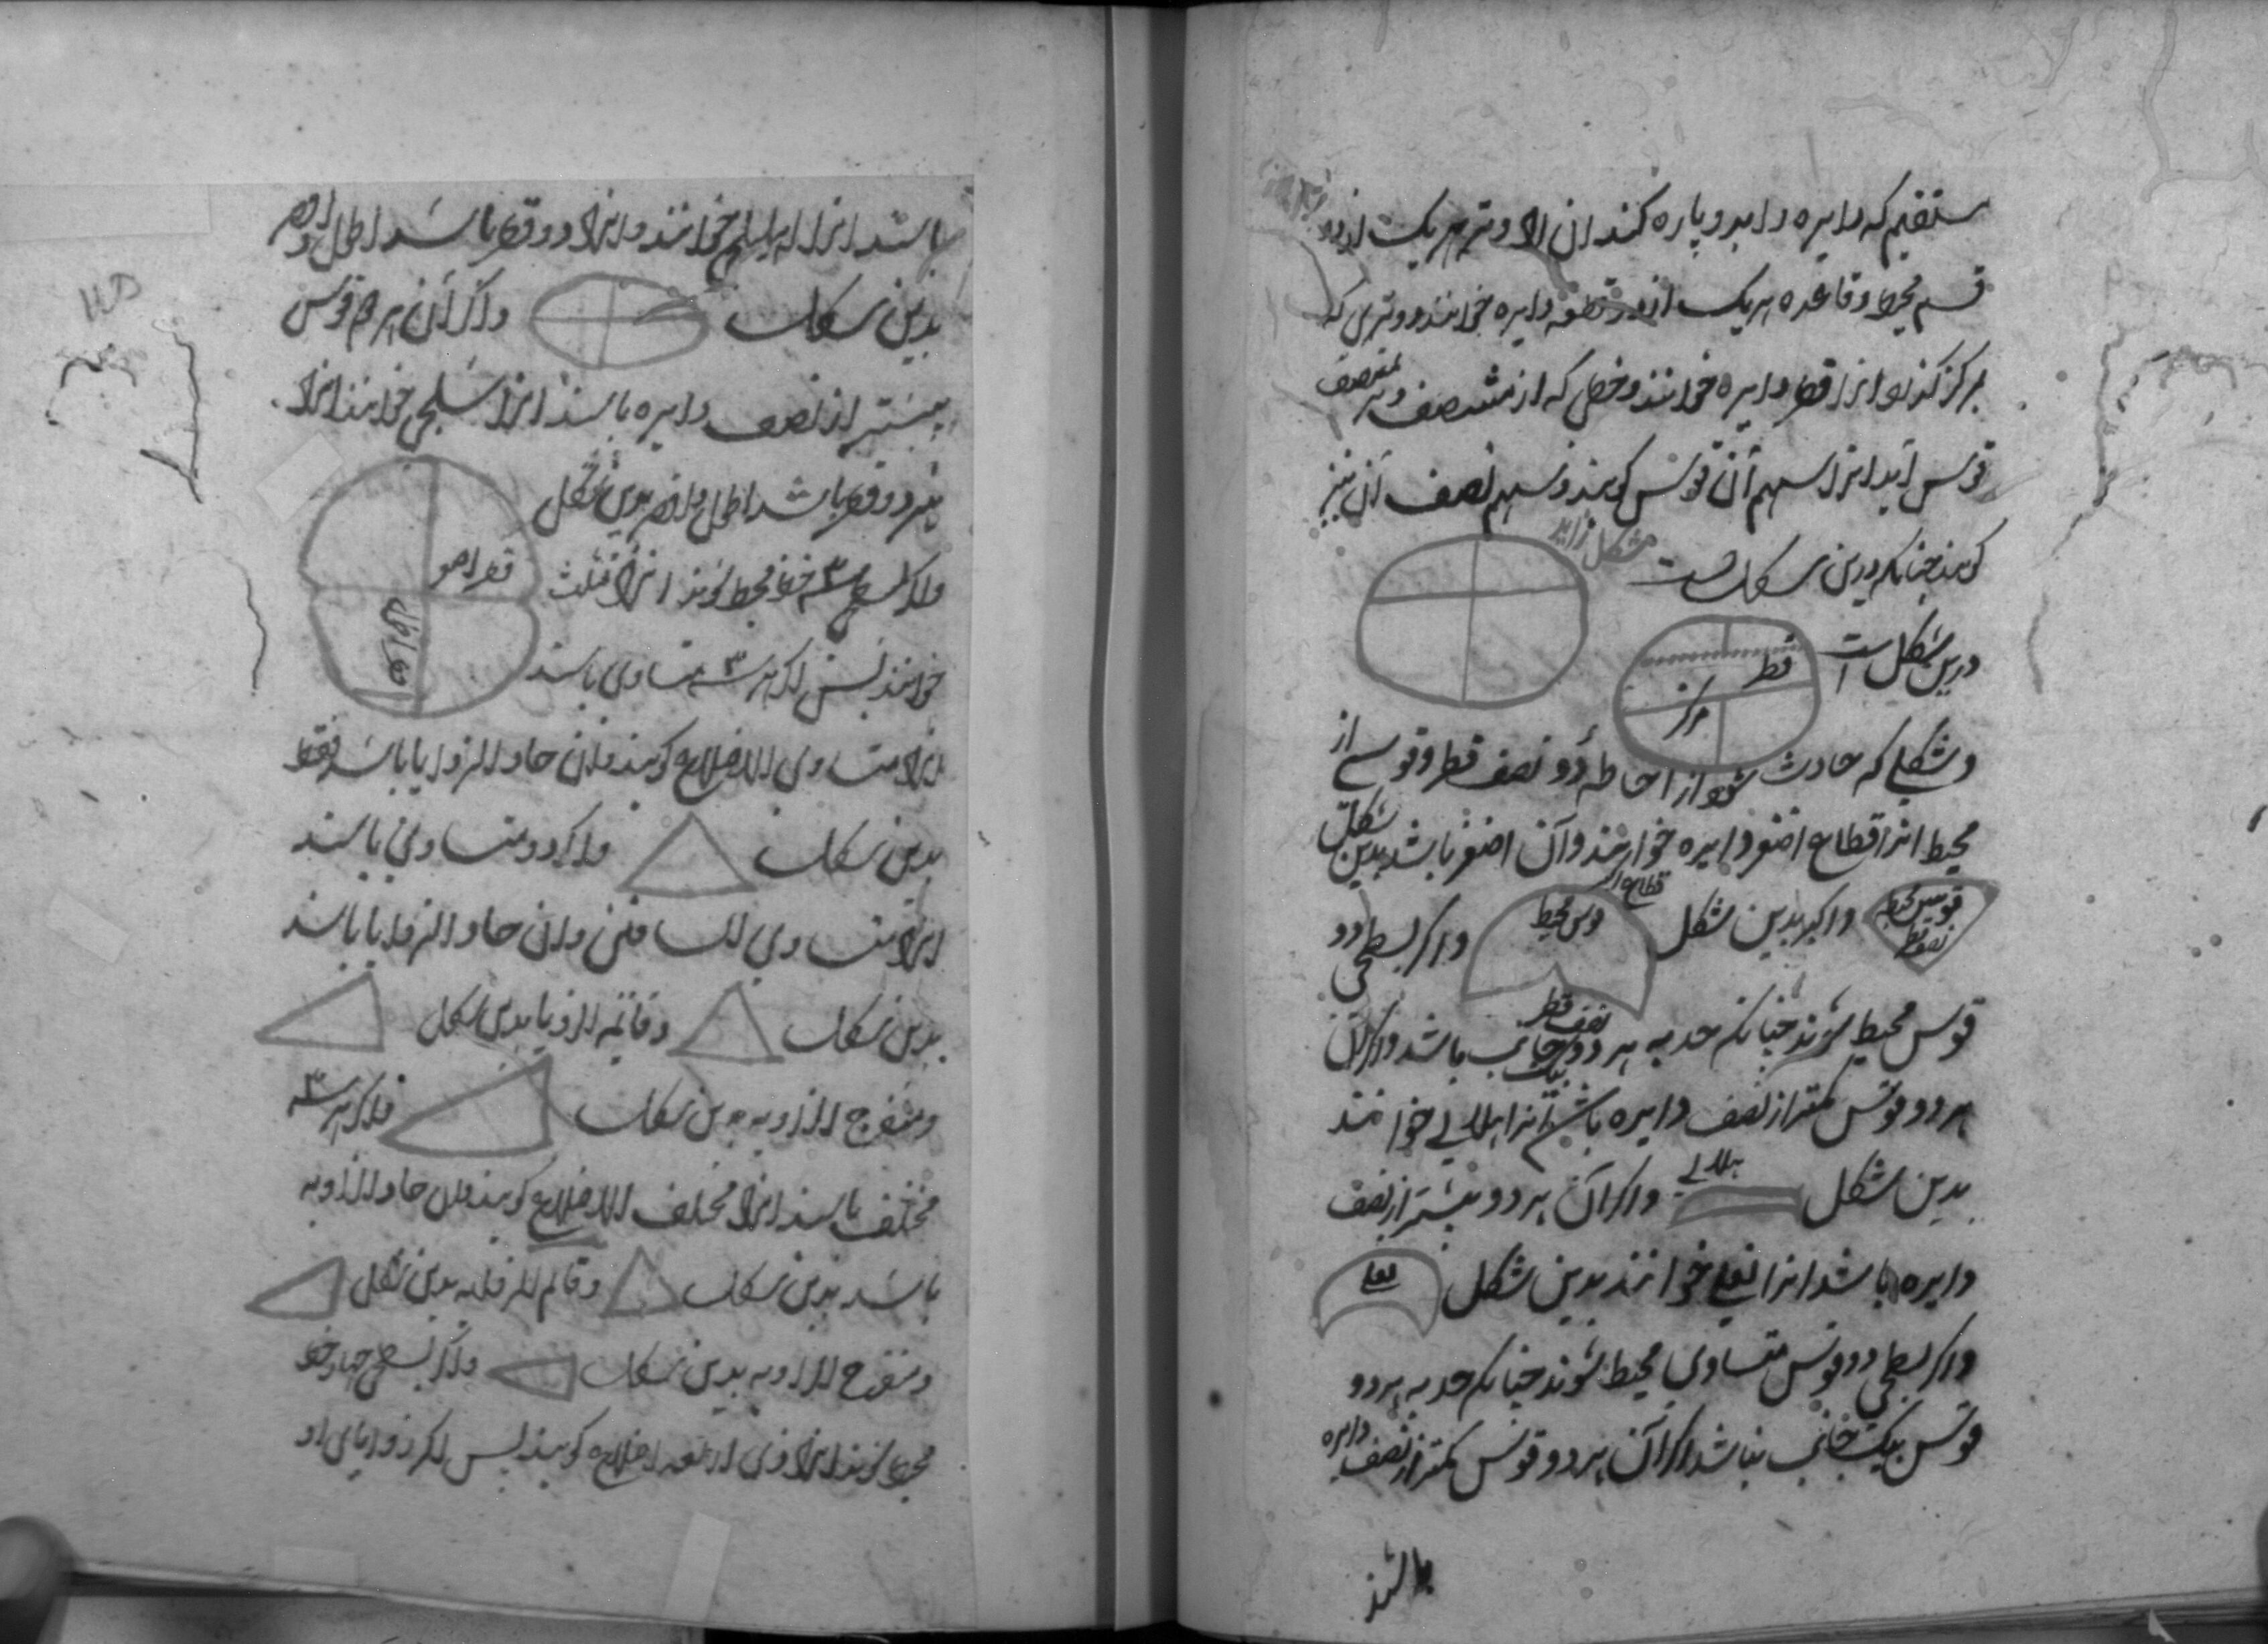 ستقیم که دایره را بدو پاره کند آن را وتر هریک از دو
قسم محیط و قاعده هریک از دو قطعه دایره خوانند و وتری که
بمرکز گذرد انرا قطر دایره خوانند و خطی که از منتصف وتر بمنتصف
قوس آید انرا سهم آن قوس گویند و سهم نصف آن نیز
گویند چنانکه درین شکل است
درین شکل است
قطر
مرکز
و شکلی که حادث شود از احاطه دو نصف قطر و قوسی از
محیط انرا قطاع اصغر دایره خوانند و آن اصغر باشد بدین شکل
قوس محیط
نصف قطر
و اکبر بدین شکل
قطاع اکبر
قوس محیط
نصف قطر
و اگر بسطحی دو
قوس محیط شوند چنانکه حدبه هر دو بیک جانب باشد و اگر آن
هر دو قوس کمتر از نصف دایره باشد آنرا هلالی خوانند
بدین شکل
هلالی
و اگر آن هر دو بیشتر از نصف
دایره باشد انرا نعلی خوانند بدین شکل
نعلی
و اگر بسطحی دو قوس متساوی محیط شوند چنانکه حدبه هر دو
قوس بیک جانب نباشد اگر آن هر دو قوس کمتر از نصف دایره
باشند
باشند انرا اهلیلجی خوانند و انرا دو قطر باشد اطول و اقصر
بدین شکل
و اگر آن هر دو قوس
بیشتر از نصف دایره باشند انرا شلجمی خوانند انرا
نیز دو قطر باشد اطول و اقصر بدین شکل
قطر اقصر
قطر اطول
و اگر بسطحی سه خط محیط شوند انرا مثلث
خوانند پس اگر هر سه متساوی باشند
انرا متساوی الاضلاع گویند و آن حاد الزوایا باشد فقط
بدین شکل
و اگر دو متساوی باشند
انرا متساوی الساقین و آن حاد الزوایا باشد
بدین شکل
و قائمه الزویا بدین شکل
و منفرج الزاویه بدین شکل
و اگر هر سه
مختلف باشند انرا مختلف الاضلاع گویند و آن حاد الزاویه
باشد بدین شکل
و قائم الزاویه بدین شکل
و منفرج الزاویه بدین شکل
و اگر بسطحی چهار خط
محیط شوند انرا ذی اربعه اضلاع گویند پس اگر زوایای او